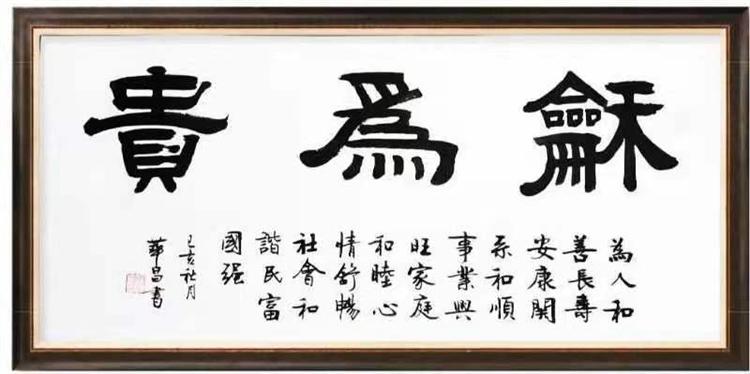 龢爲貴
為人和
善長壽
安康関
系和順
事業興
旺家庭
和睦心
情舒暢
社會和
諧民富
國强
己亥社月
華昌書